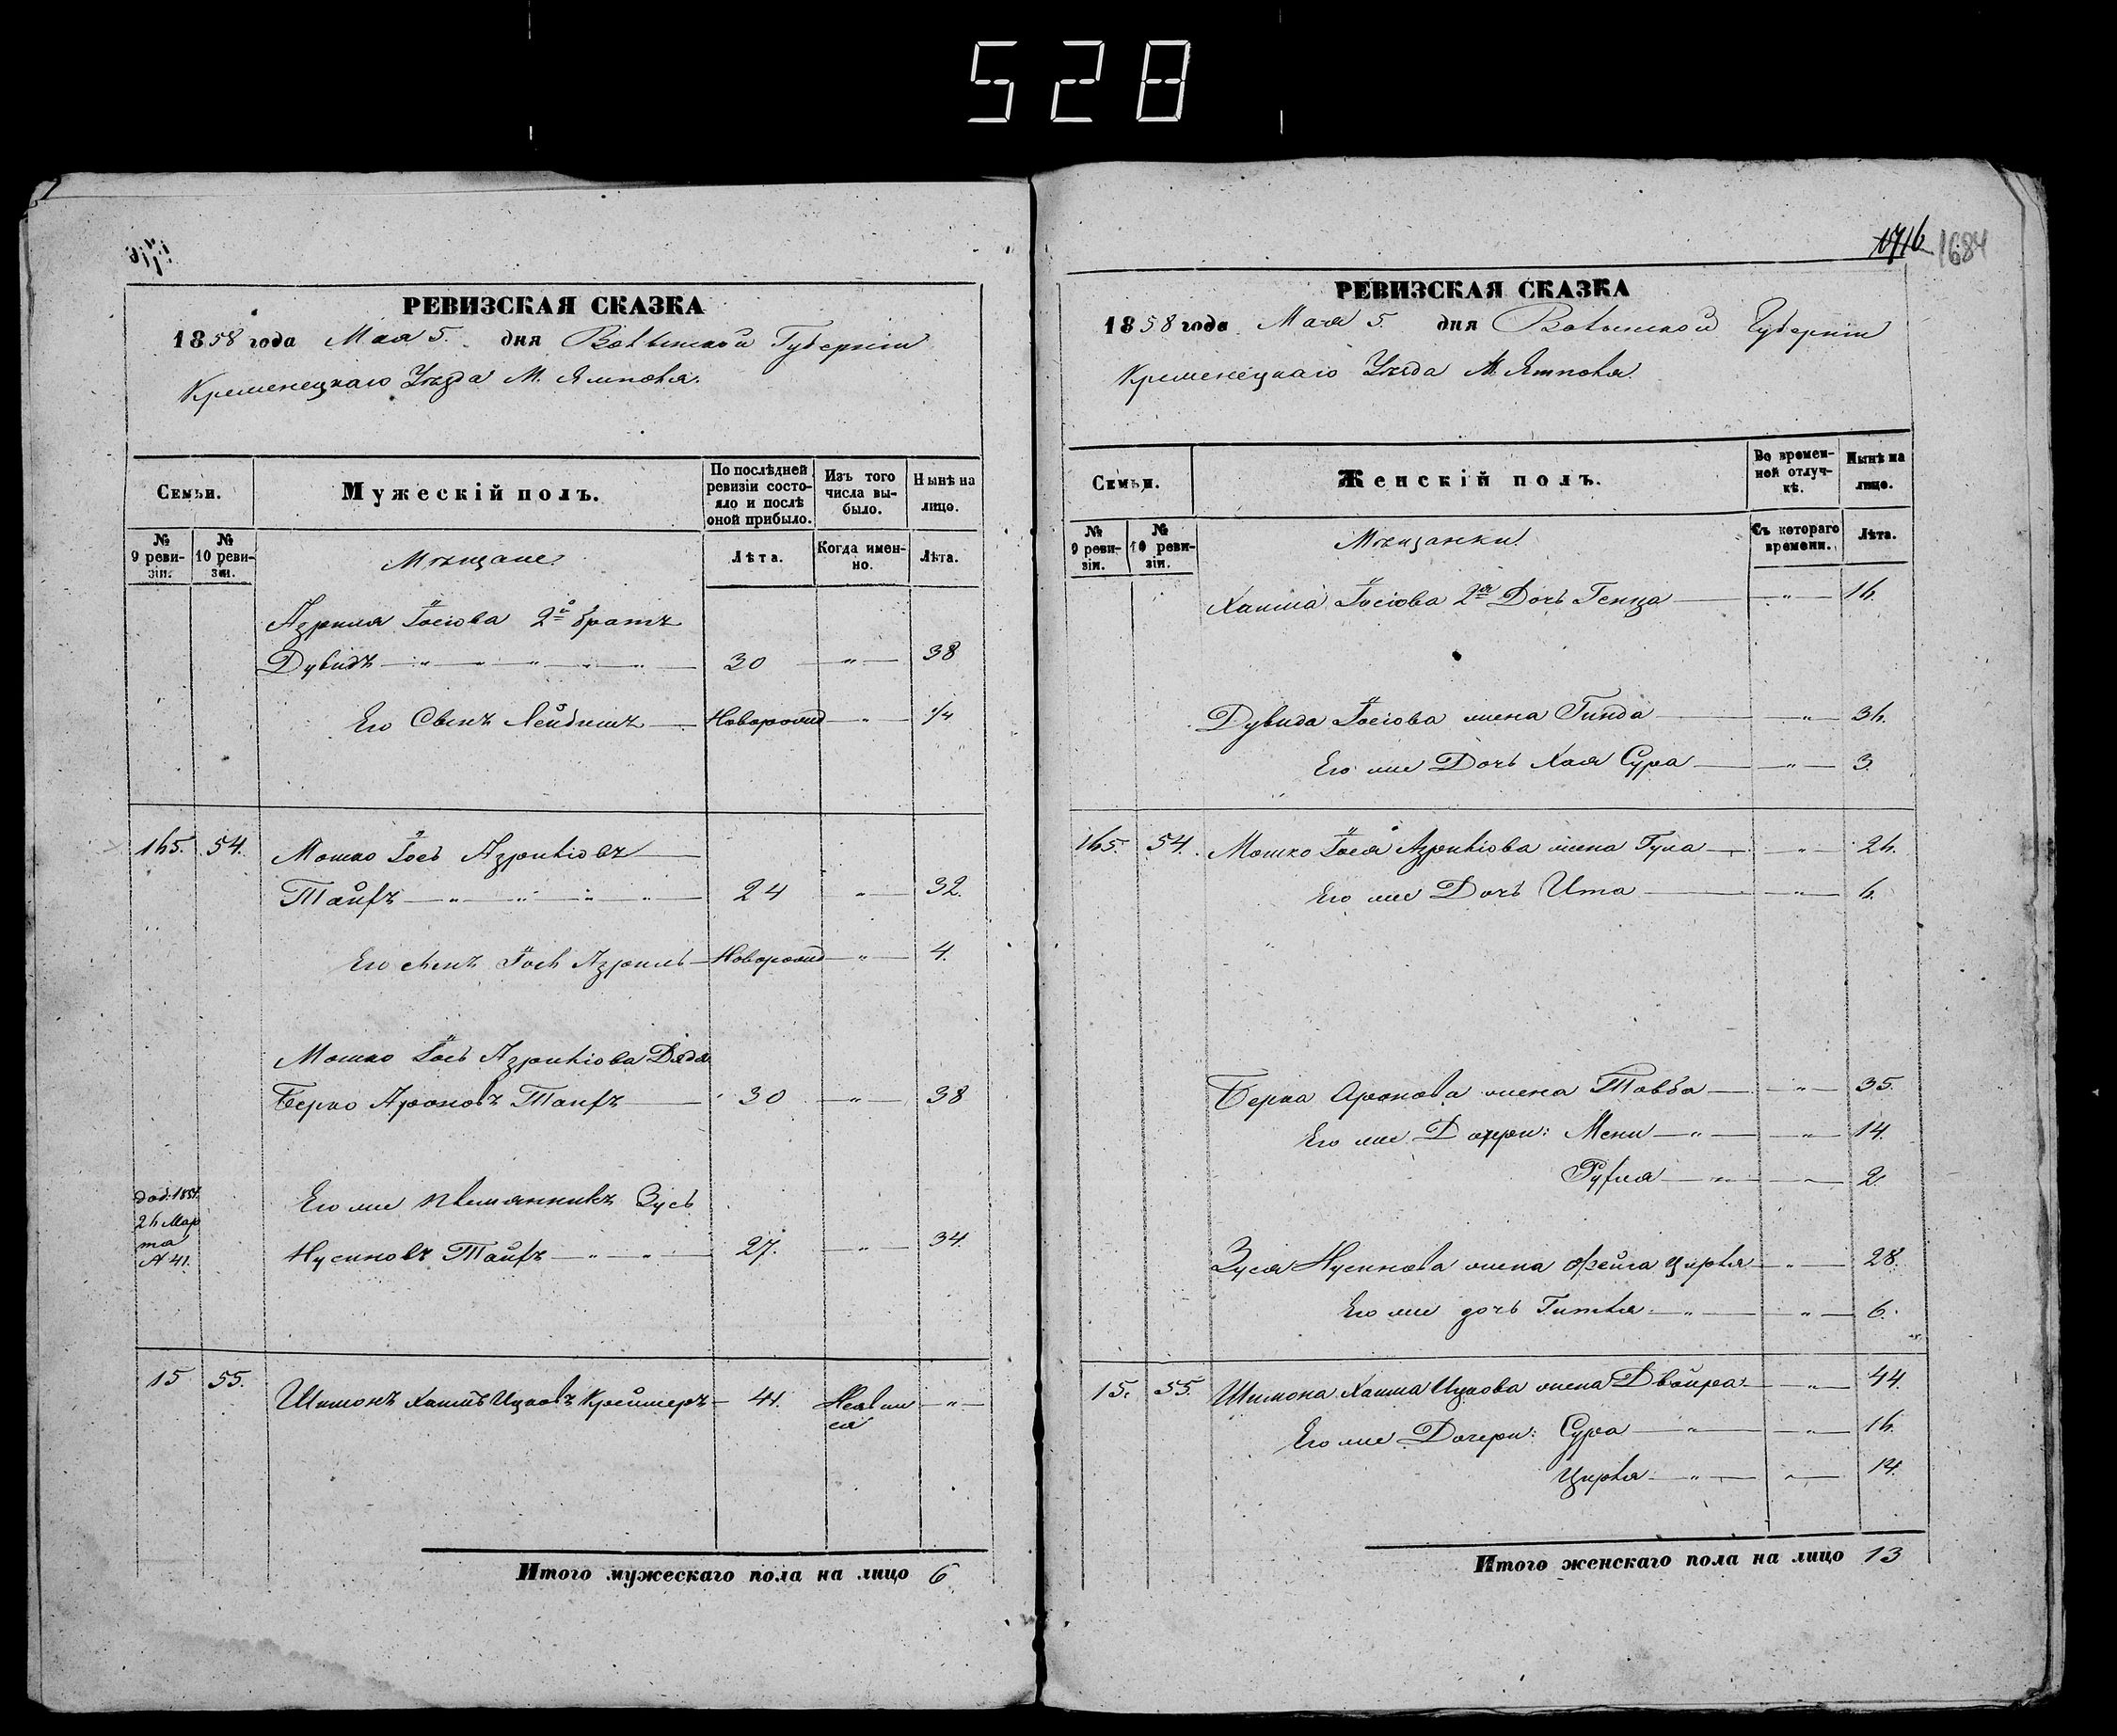 528
1716 1684
РЕВИЗСКАЯ СКАЗКА
1858 года Мая 5. дня Волынской Губерніи
Кременецкаго Уѣзда М. Ямполя.
Семьи.
Мужескій полъ.
По послѣдней ревизіи состояло и послѣ оной прибыло.
Изъ того числа выбыло.
Нынѣ на лицо.
№ 9 ревизіи.
№ 10 ревизіи.
Мѣщане
Лѣта.
Когда именно.
Лѣта.
Азриля Іосіова 2й братъ
Дувидъ 30 " 38
Его Сынъ Лейбишъ Новорожд " 1/4
165. 54. Мошко Іось Азриліовъ
Тайфъ 24 " 32.
Его сынъ Іось Азриль Новорожд " 4.
Мошко Іось Азриліова Дядя
Берко Ароновъ Тайфъ 30 " 38
доб. 1851. 26 Марта № 41.
Его же племянникъ Зусь
Нусиновъ Тайфъ 27. " 34.
15 55. Шимонъ Хаимъ Ицковъ Крейшеръ 41. Неявился "
Итого мужескаго пола на лицо 6
РЕВИЗСКАЯ СКАЗКА
1858 года Мая 5. дня Волынской Губерніи
Кременецкаго Уѣзда М. Ямполя.
Семьи.
Женскій полъ.
Во временной отлучкѣ.
Нынѣ на лицо.
№ 9 ревизіи.
№ 10 ревизіи.
Мѣщанки
Съ котораго времени.
Лѣта.
Хаима Іосіова 2я Дочь Генца " 16.
Дувида Іосіова жена Гинда " 36.
Его же Дочь Хая Сура " 3.
165. 54. Мошко Іося Азриліова жена Гула " 26.
Его же Дочь Ита " 6.
Берка Аронова жена Товба " 35.
Его же Дочери: Мени " 14.
Рухля " 2.
Зуся Нусинова жена Фейга Цирля " 28.
Его же дочь Гитля " 6.
15. 55. Шимона Хаима Ицкова жена Двойра " 44.
Его же Дочери: Сура " 16.
Цирля " 14.
Итого женскаго пола на лицо 13